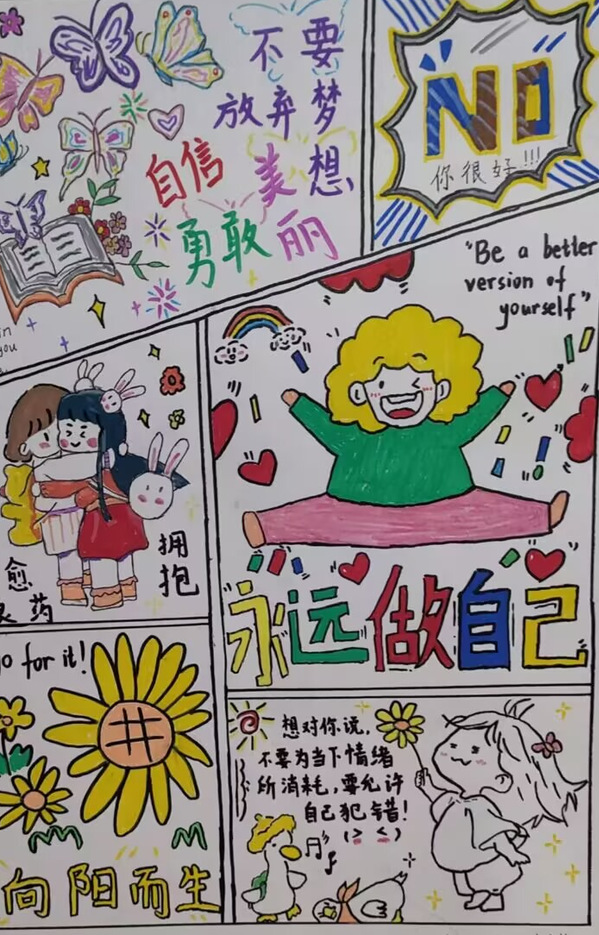 不要
放弃梦
想
自信
美丽
勇敢
in
you
NO
你很好!!!
"Be a better
version of
yourself"
拥
抱
愈
药
永远做自己
o for it!
向阳而生
想对你说,
不要为当下情绪
所消耗,要允许
自己犯错!
(> <)